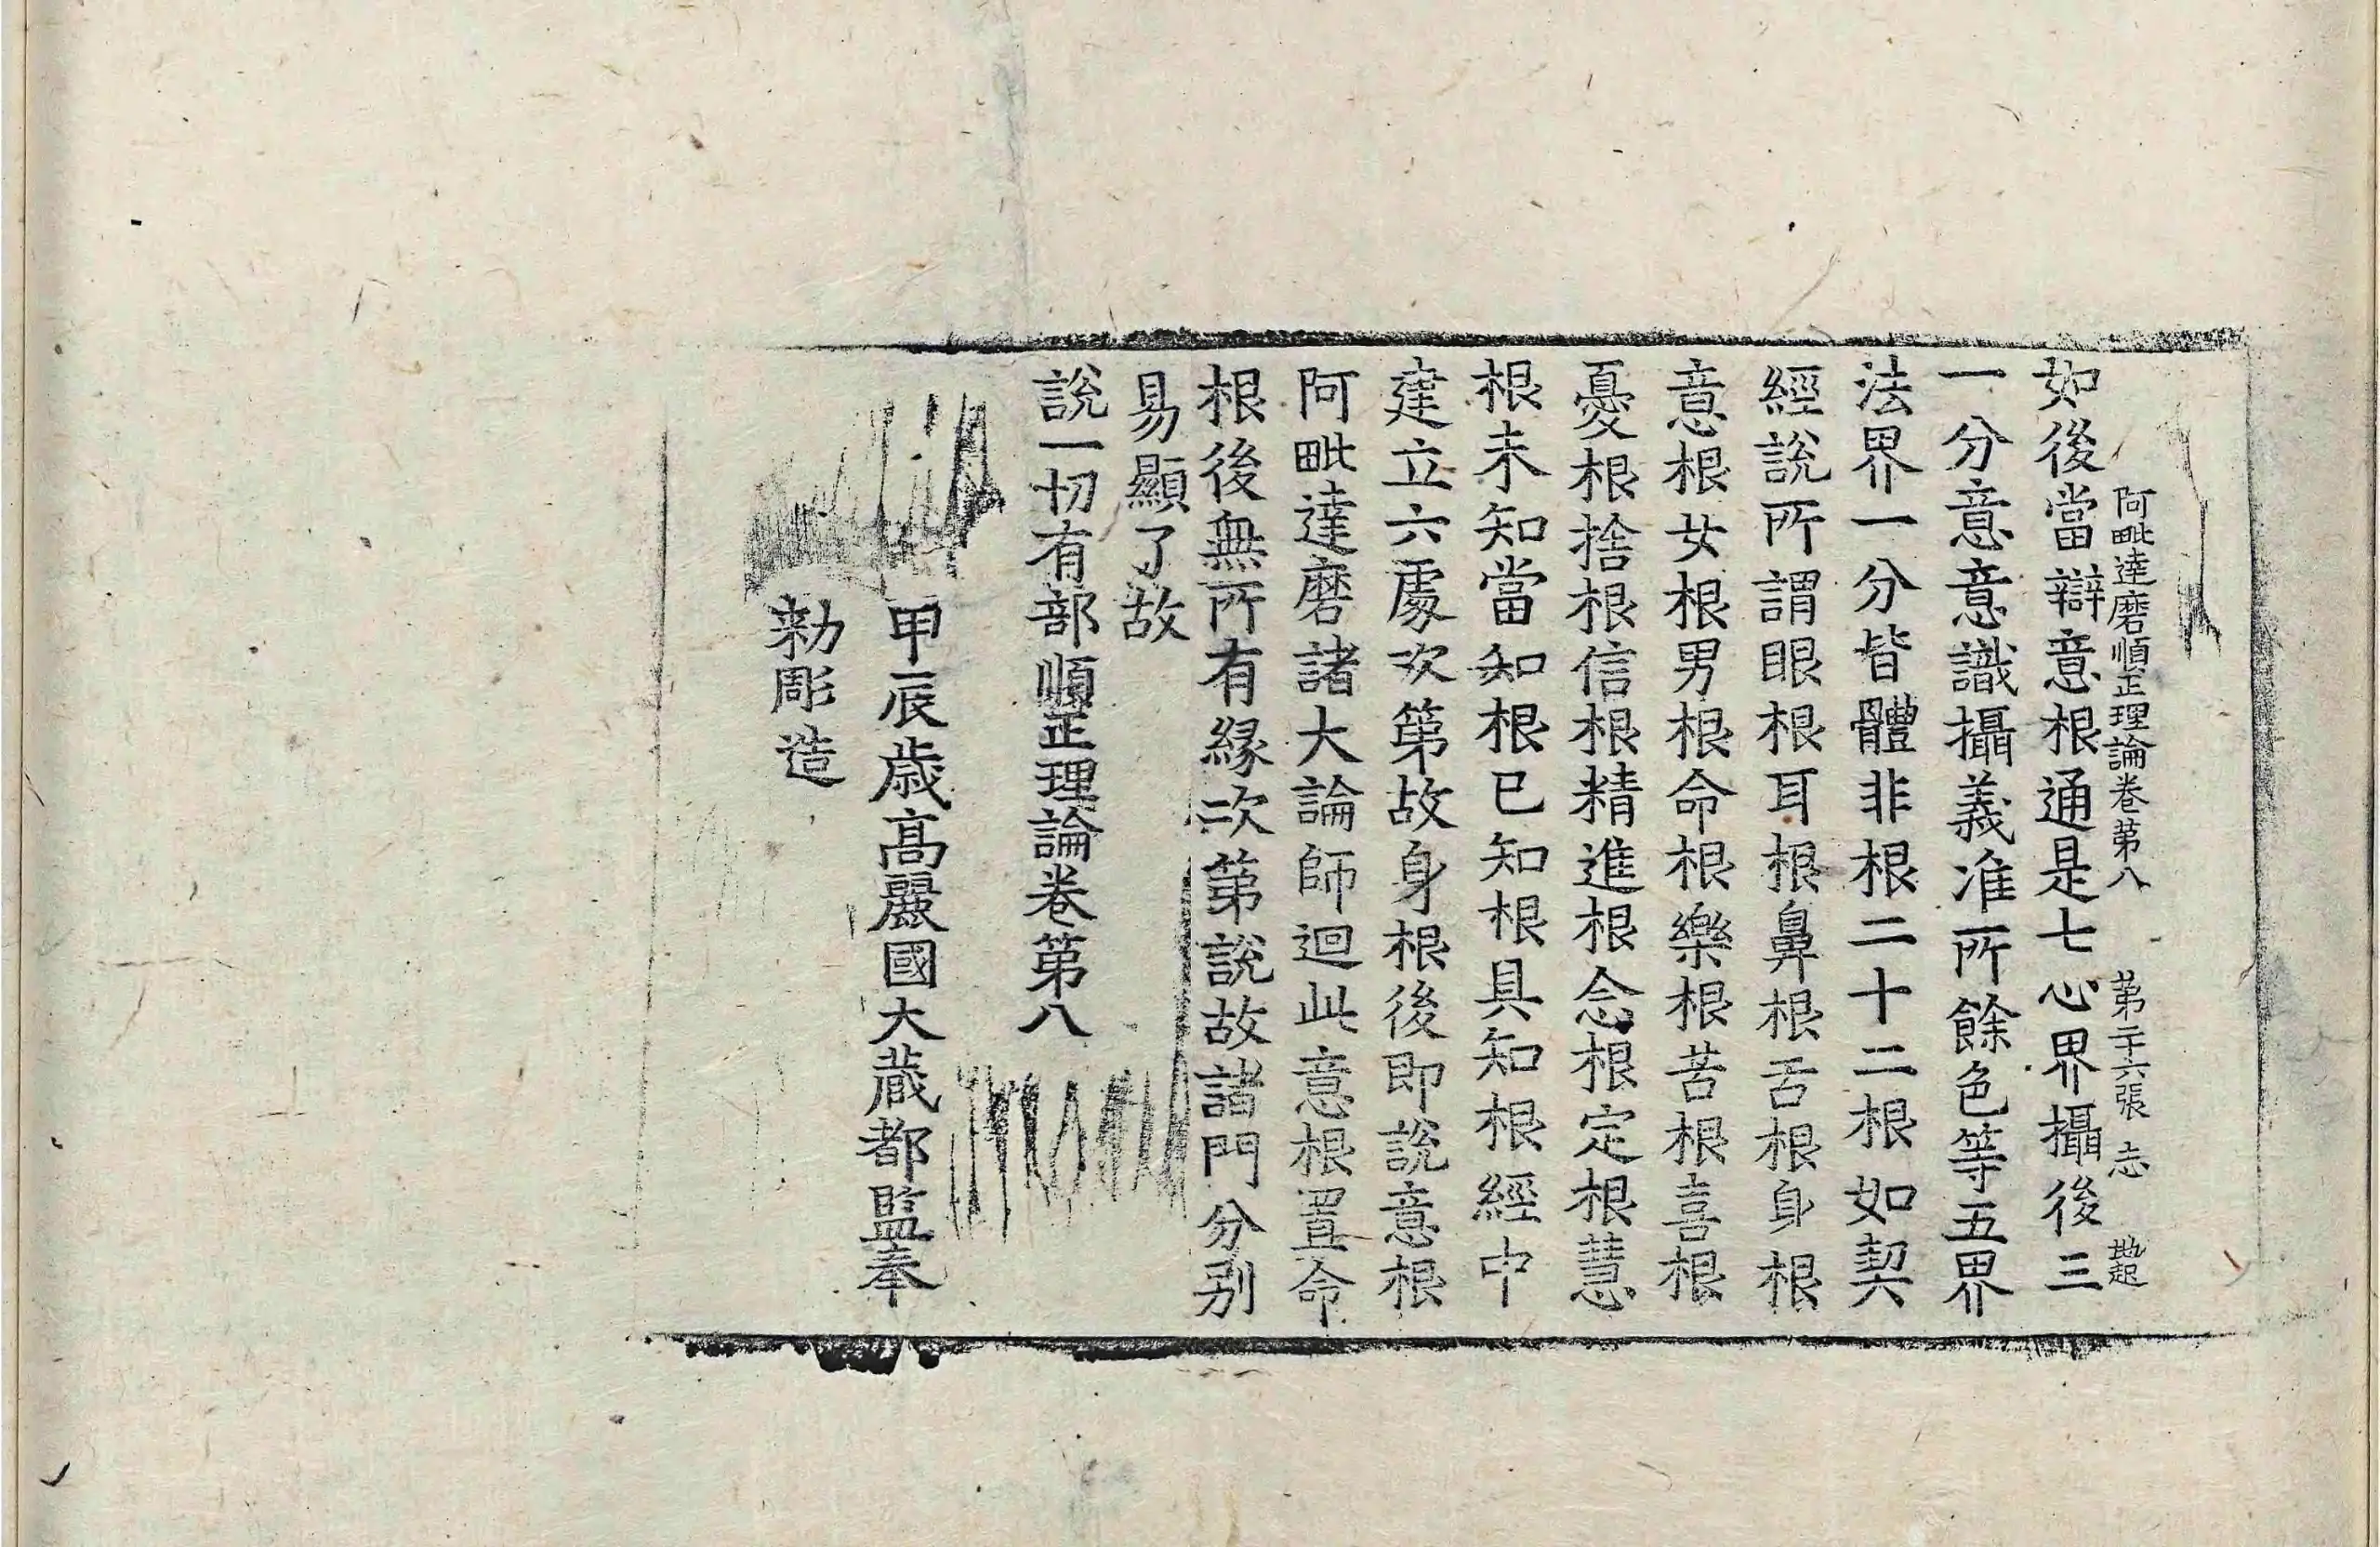 阿毗達磨順正理論卷第八　第二十六張　志
如後當辯意根通是七心界攝後三
一分意意識攝義准所餘色等五界
法界一分皆體非根二十二根如契
經說所謂眼根耳根鼻根舌根身根
意根女根男根命根樂根苦根喜根
憂根捨根信根精進根念根定根慧
根未知當知根已知根具知根經中
建立六處次第故身根後即說意根
阿毗達磨諸大論師迴此意根置命
根後無所有緣次第說故諸門分別
易顯了故
說一切有部順正理論卷第八
甲辰歲高麗國大藏都監奉
勑彫造